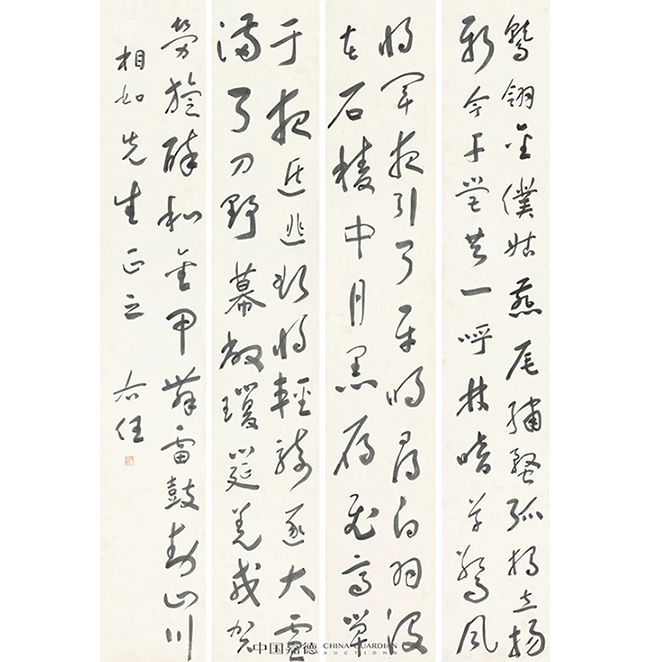 鷲翎金僕姑燕尾繡蝥弧獨立揚
新令千營共一呼林暗草驚風
將軍夜引弓平明尋白羽沒
在石稜中月黑雁飛高單
于夜遁逃欲將輕騎逐大雪
滿弓刀野幕敞瓊筵羌戎賀
勞旋醉和金甲舞雷鼓動山川
相如先生正之 右任
中国嘉德 CHINA GUARDIAN
AUCTIONS